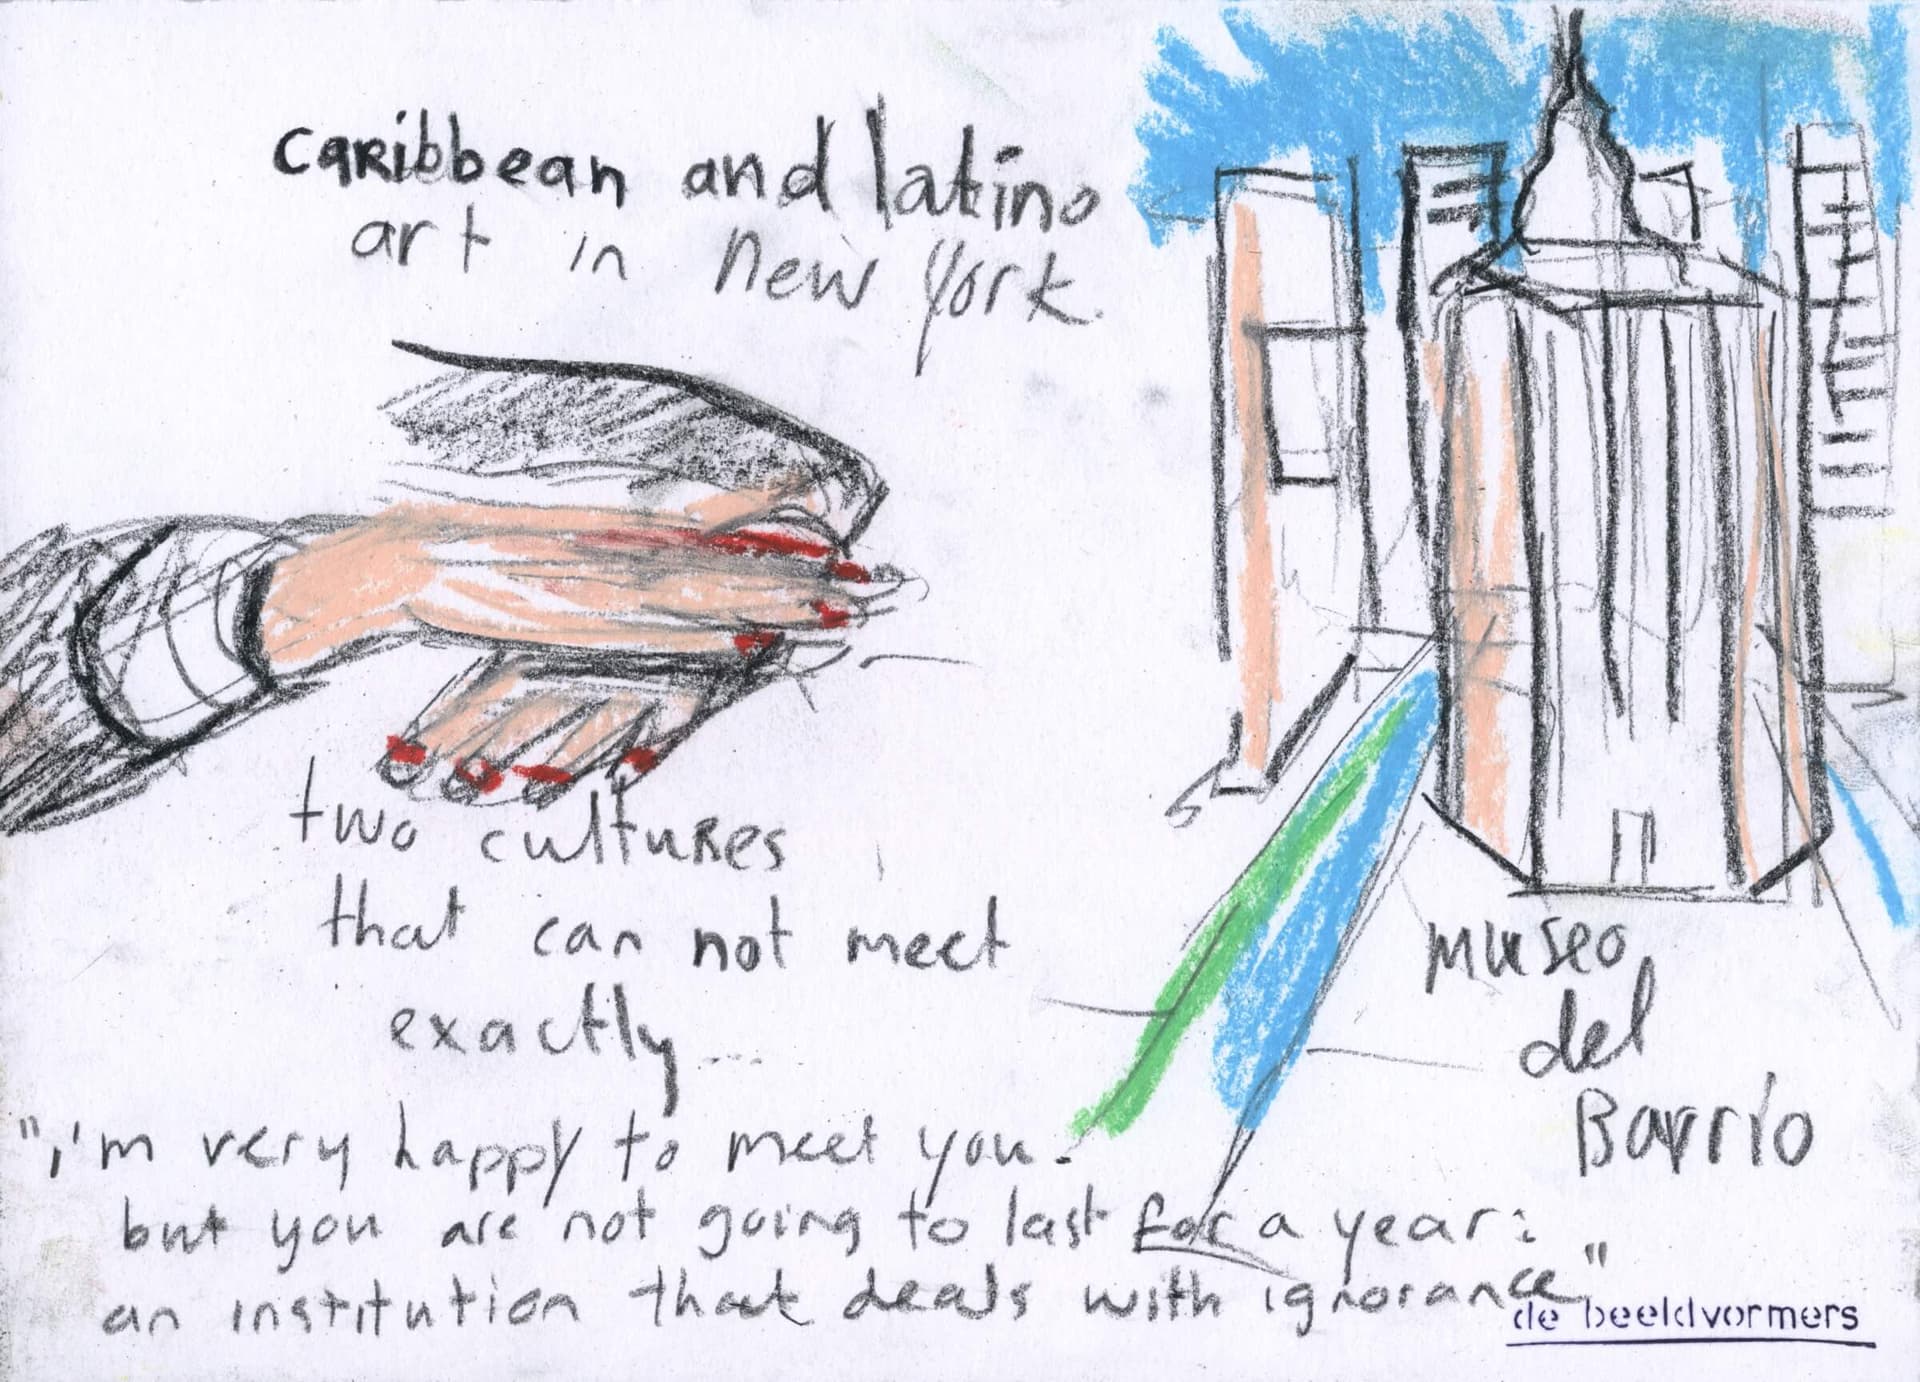 caribbean and latino
art in New York.
two cultures
that can not meet
exactly...
museo
del
Barrio
"i'm very happy to meet you.
but you are not going to last for a year:
an institution that deals with ignorance"
de beeldvormers